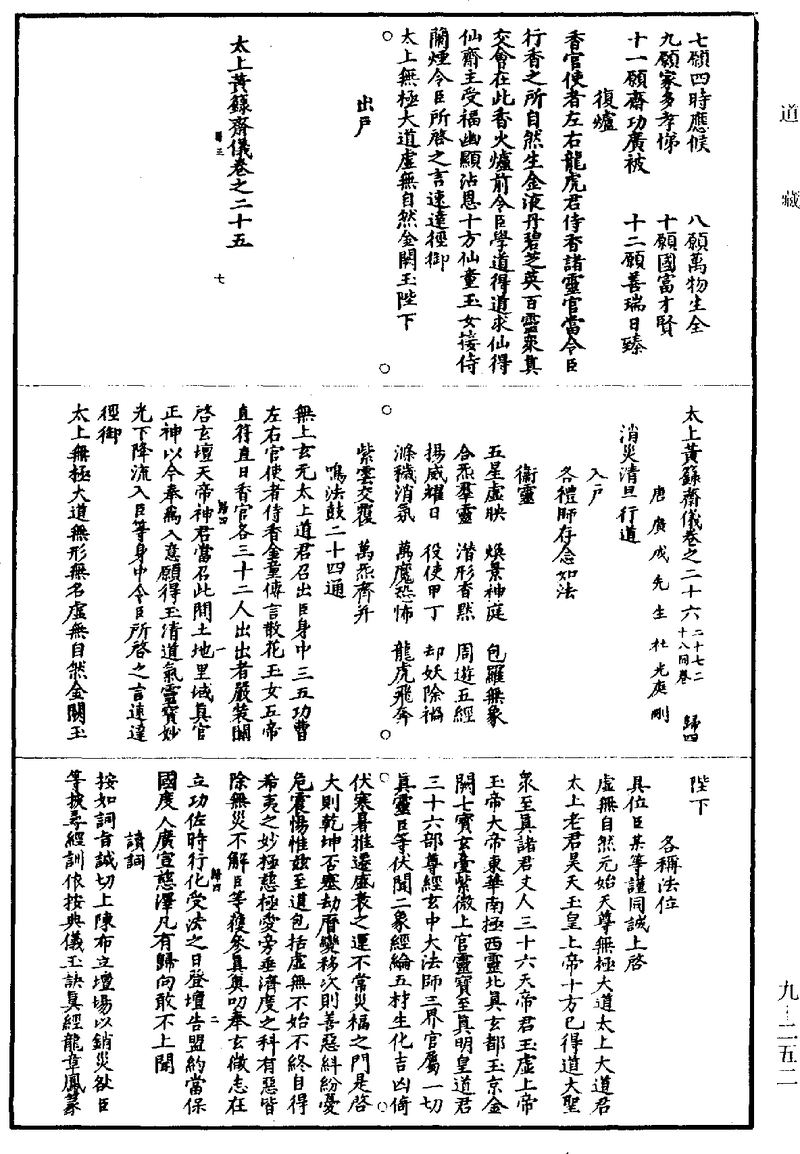 道藏
七願四時應候　八願萬物生全
九願家多孝悌　十願國富才賢
十一願齋功廣被　十二願善瑞日臻
復爐
香官使者左右龍虎君侍香諸靈官當令臣
行香之所自然生金液丹碧芝英百靈衆真
交會在此香火爐前令臣學道得道求仙得
仙齋主受福幽顯沾恩十方仙童玉女接侍
蘭煙令臣所啓之言速達徑御
太上無極大道虛無自然金闕玉陛下
出戶
太上黃籙齋儀卷之二十五
歸三
七
太上黃籙齋儀卷之二十六 二十七二十八同卷 歸四
唐廣成先生杜光庭刪
消災清旦行道
入戶
各禮師存念如法
衞靈
五星虛映　煥景神庭　包羅無象
合炁羣靈　潛形杳默　周遊五經
揚威耀日　役使甲丁　却妖除禍
滌穢消氛　萬魔恐怖　龍虎飛奔
紫雲交覆　萬炁齊并
鳴法鼓二十四通
無上玄元太上道君召出臣身中三五功曹
左右官使者侍香金童傳言散花玉女五帝
直符直日香官各三十二人出出者嚴裝關
歸四
一
啓玄壇天帝神君當召此間土地里域真官
正神以今奉爲入意願得玉清道氣靈寶妙
光下降流入臣等身中令臣所啓之言速達
徑御
太上無極大道無形無名虛無自然金闕玉
陛下
各稱法位
具位臣某等謹同誠上啓
虛無自然元始天尊無極大道太上大道君
太上老君昊天玉皇上帝十方已得道大聖
衆至真諸君丈人三十六天帝君玉虛上帝
玉帝大帝東華南極西靈北真玄都玉京金
闕七寶玄臺紫微上宮靈寶至真明皇道君
三十六部尊經玄中大法師三界官屬一切
真靈臣等伏聞二象經綸五材生化吉凶倚
伏寒暑推遷盛衰之運不常災福之門是啓
大則乾坤否塞劫曆變移次則善惡糾紛憂
危震惕惟兹至道包括虛無不始不終自得
希夷之妙極慈極愛旁垂濟度之科有惡皆
除無災不解臣等獲參真奧叨奉玄徽志在
歸四
二
立功佐時行化受法之日登壇告盟約當保
國度人廣宣慈澤凡有歸向敢不上聞
讀詞
按如詞旨誠切上陳布立壇場以銷災咎臣
等披尋經訓依按典儀玉訣真經龍章鳳篆
九—二五二